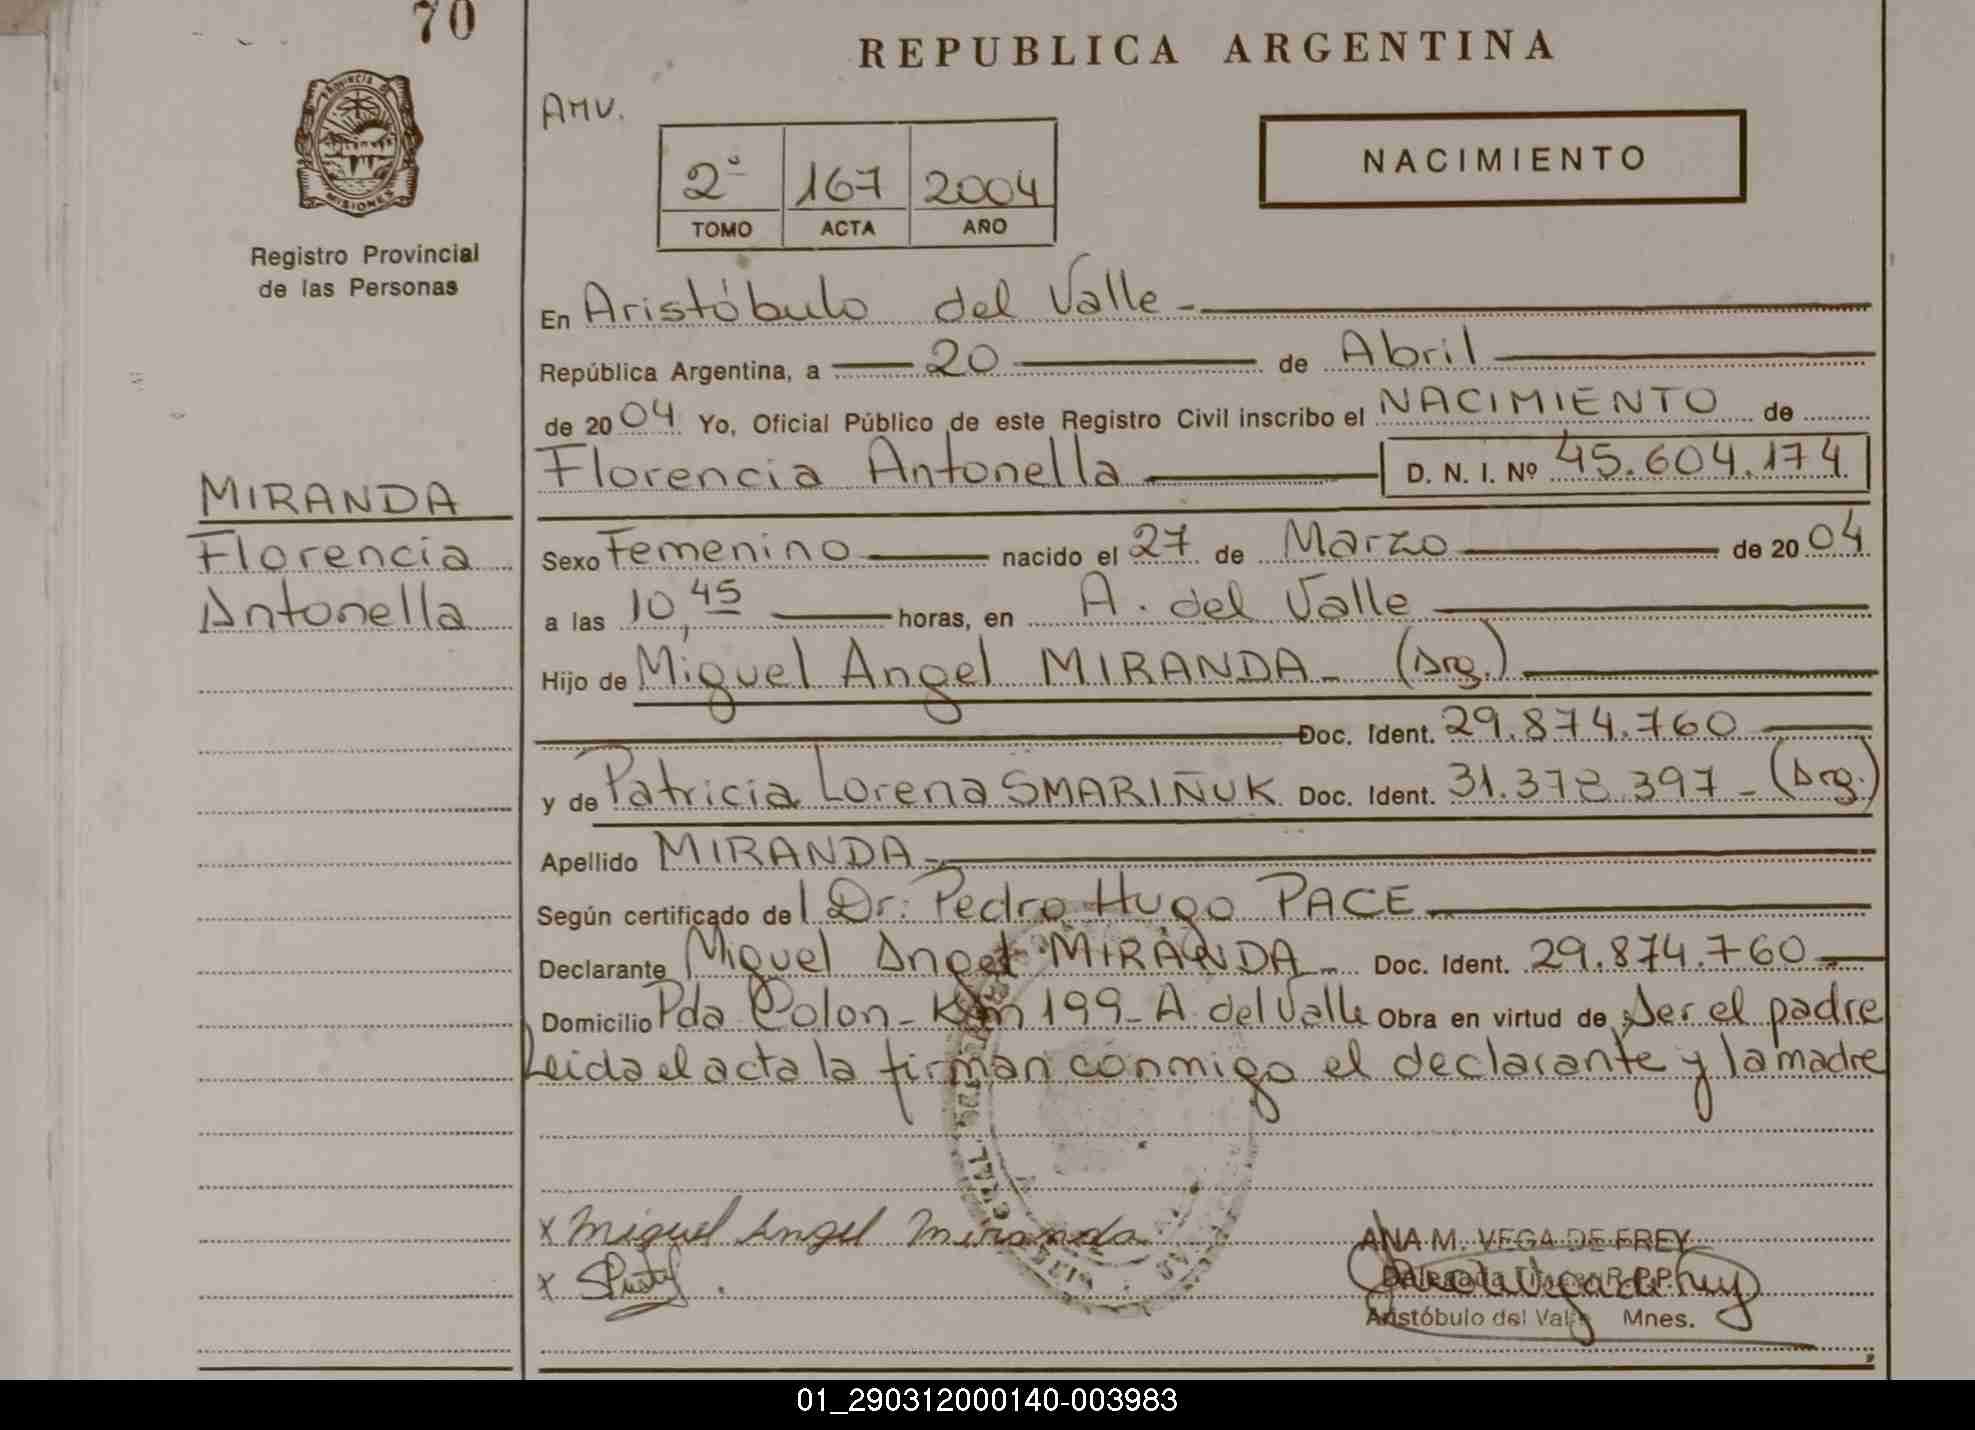 70
REPUBLICA ARGENTINA
AMV.
NACIMIENTO
PROVINCIA DE
MISIONES
2º 167 2004
TOMO ACTA AÑO
Registro Provincial
de las Personas
En Aristóbulo del Valle -
República Argentina, a 20 de Abril
de 2004 Yo, Oficial Público de este Registro Civil inscribo el NACIMIENTO de
Florencia Antonella D. N. I. Nº 45.604.174
MIRANDA
Florencia
Antonella
Sexo Femenino nacido el 27 de Marzo de 2004
a las 10,45 horas, en A. del Valle
Hijo de Miguel Angel MIRANDA - (Arg.)
Doc. Ident. 29.874.760
y de Patricia Lorena SMARIÑUK Doc. Ident. 31.378.397 - (Arg.)
Apellido MIRANDA -
Según certificado del Dr. Pedro Hugo PACE
Declarante Miguel Angel MIRANDA - Doc. Ident. 29.874.760
Domicilio Pda Colon - Km 199 - A. del Valle Obra en virtud de Ser el padre
Leida el acta la firman conmigo el declarante y la madre
x Miguel Angel Miranda
x
ANA M. VEGA DE FREY
Delegada R.P.P.
Aristóbulo del Valle Mnes.
01_290312000140-003983